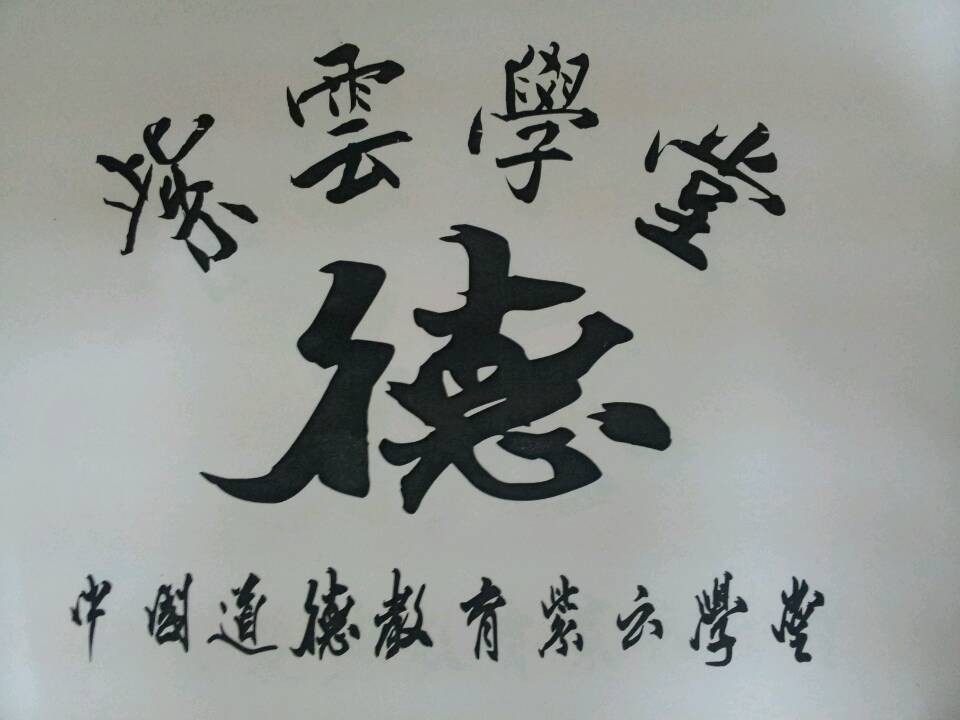 紫雲學堂
德
中國道德教育紫云學堂